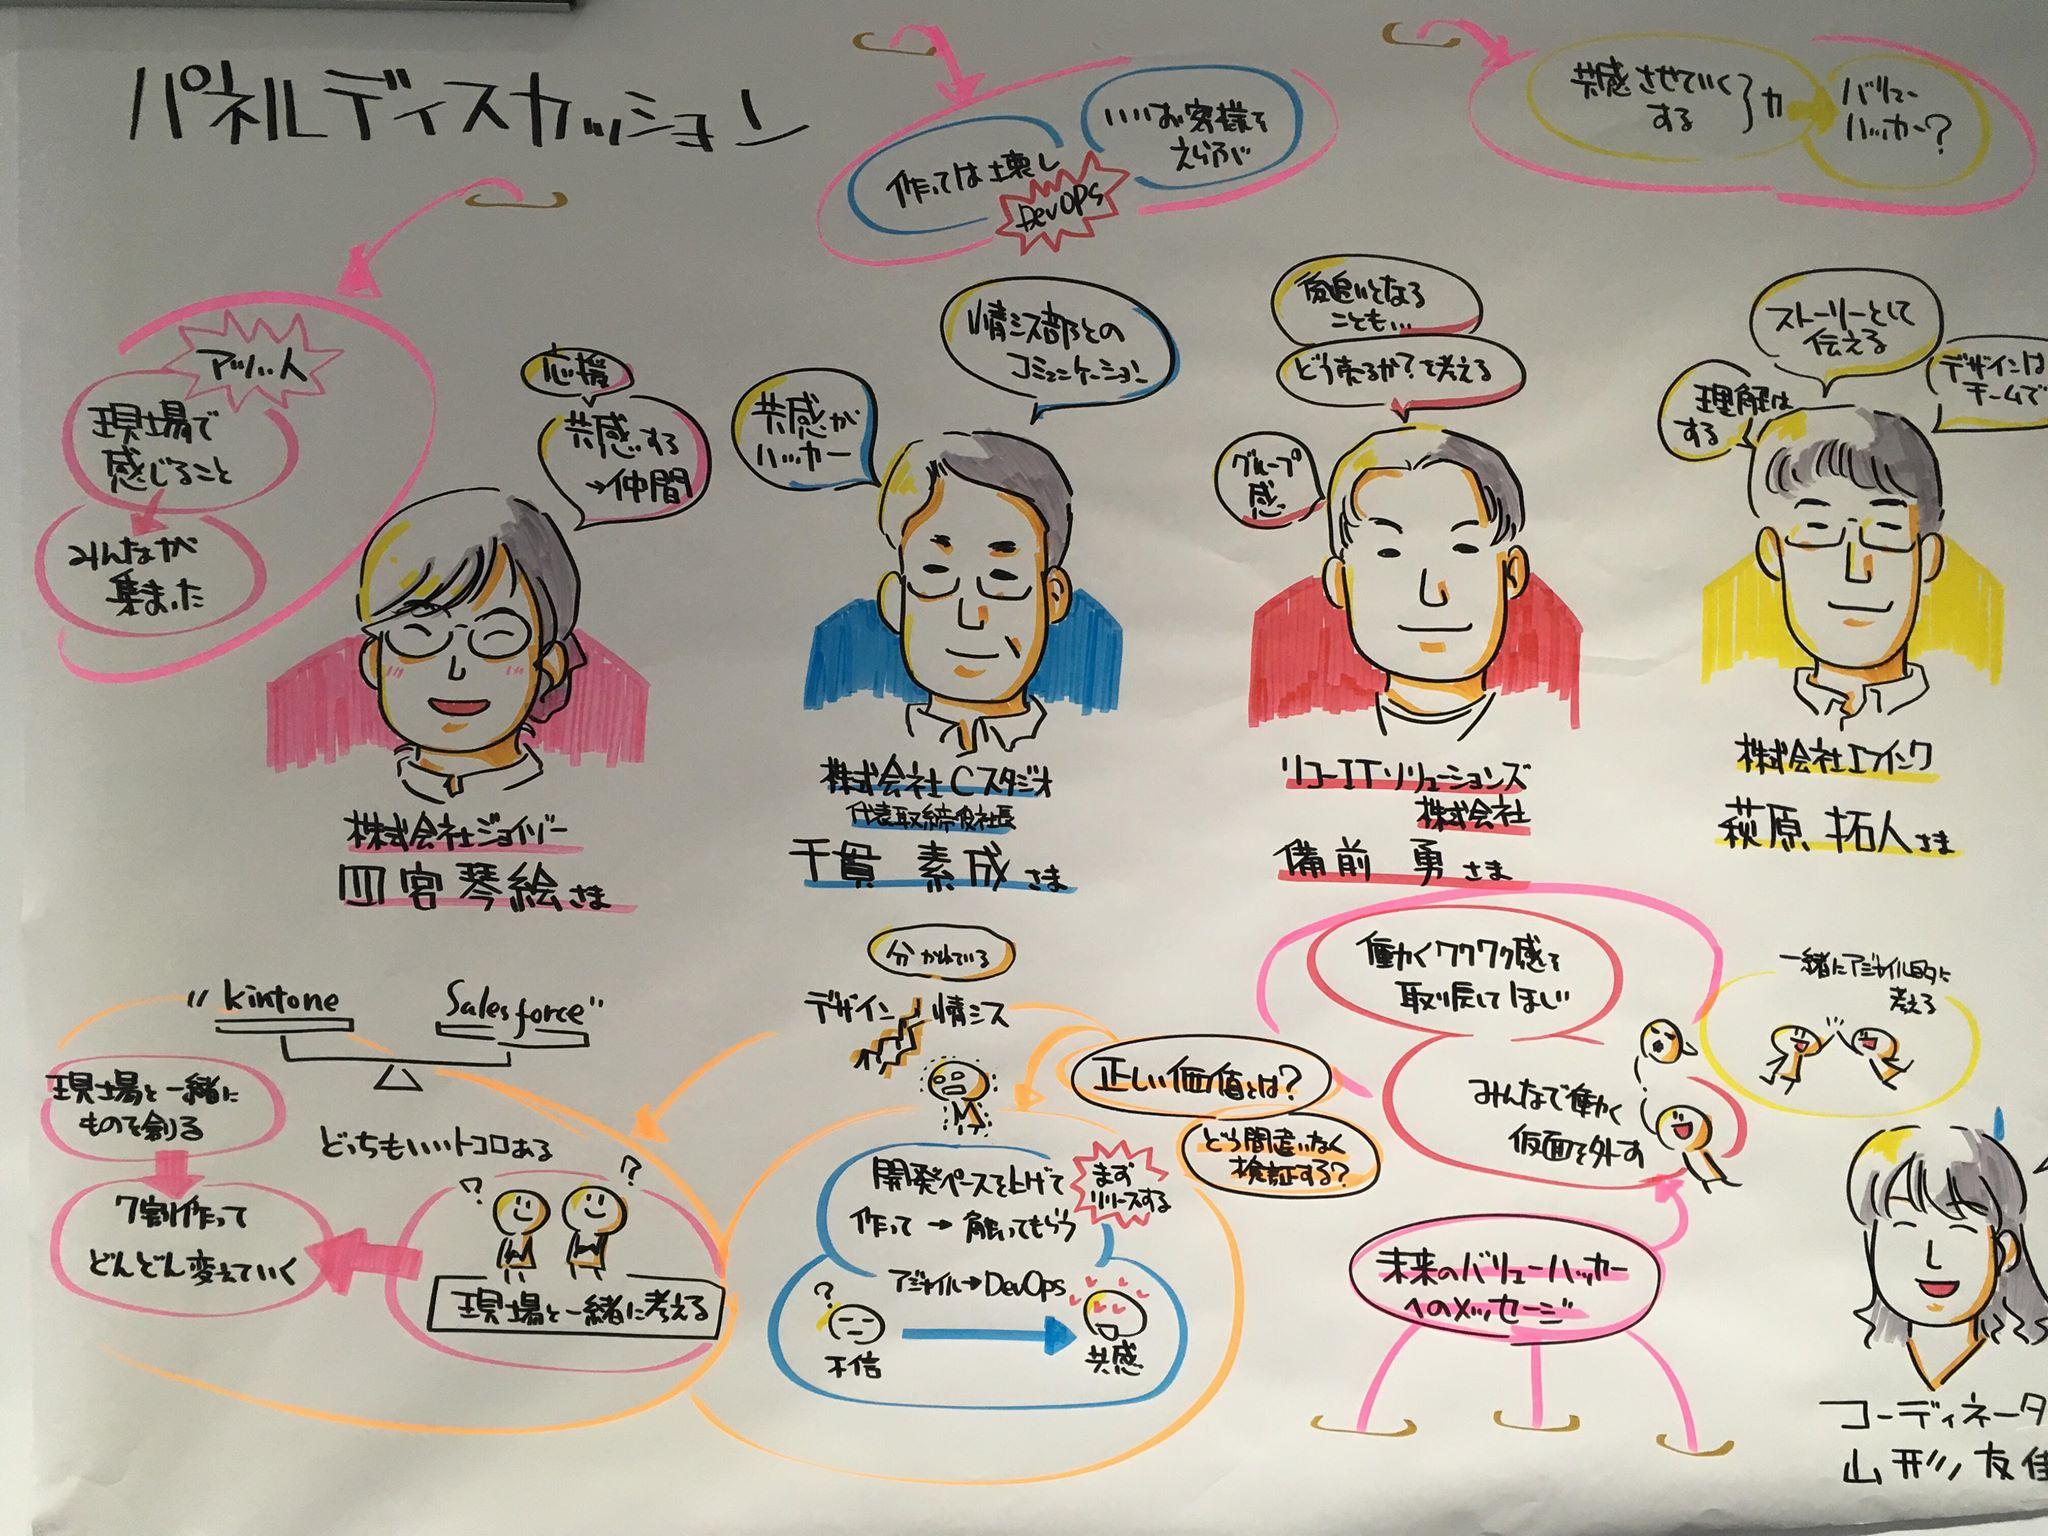 パネルディスカッション
作っては壊し
DevOps
いいお客様を
えらぶ
共感させていく
する
力
バリュー
ハッカー?
アツい人
現場で
感じること
みんなが
集まった
応援
共感する
→仲間
共感が
ハッカー
情シス部との
コミュニケーション
後追いとなる
ことも…
どう売るか?を考える
グループ
感
ストーリーとして
伝える
理解は
する
デザインは
チームで
株式会社ジョイゾー
四宮 琴絵さま
株式会社Cスタジオ
代表取締役社長
千貫 素成さま
リコーITソリューションズ
株式会社
備前 勇さま
株式会社エフインク
萩原 拓人さま
"kintone
Salesforce"
どっちもいいトコロある
現場と一緒に
ものを創る
7割作って
どんどん変えていく
?
?
現場と一緒に考える
分かれている
デザイン
情シス
正しい価値とは?
どう間違いなく
検証する?
開発ペースを上げて
作って→触ってもらう
まず
リリースする
アジャイル→DevOps
?
不信
共感
働くワクワク感を
取り戻してほしい
みんなで働く
仮面を外す
一緒にアジャイル的に
考える
未来のバリューハッカー
へのメッセージ
コーディネータ
山形 友佳